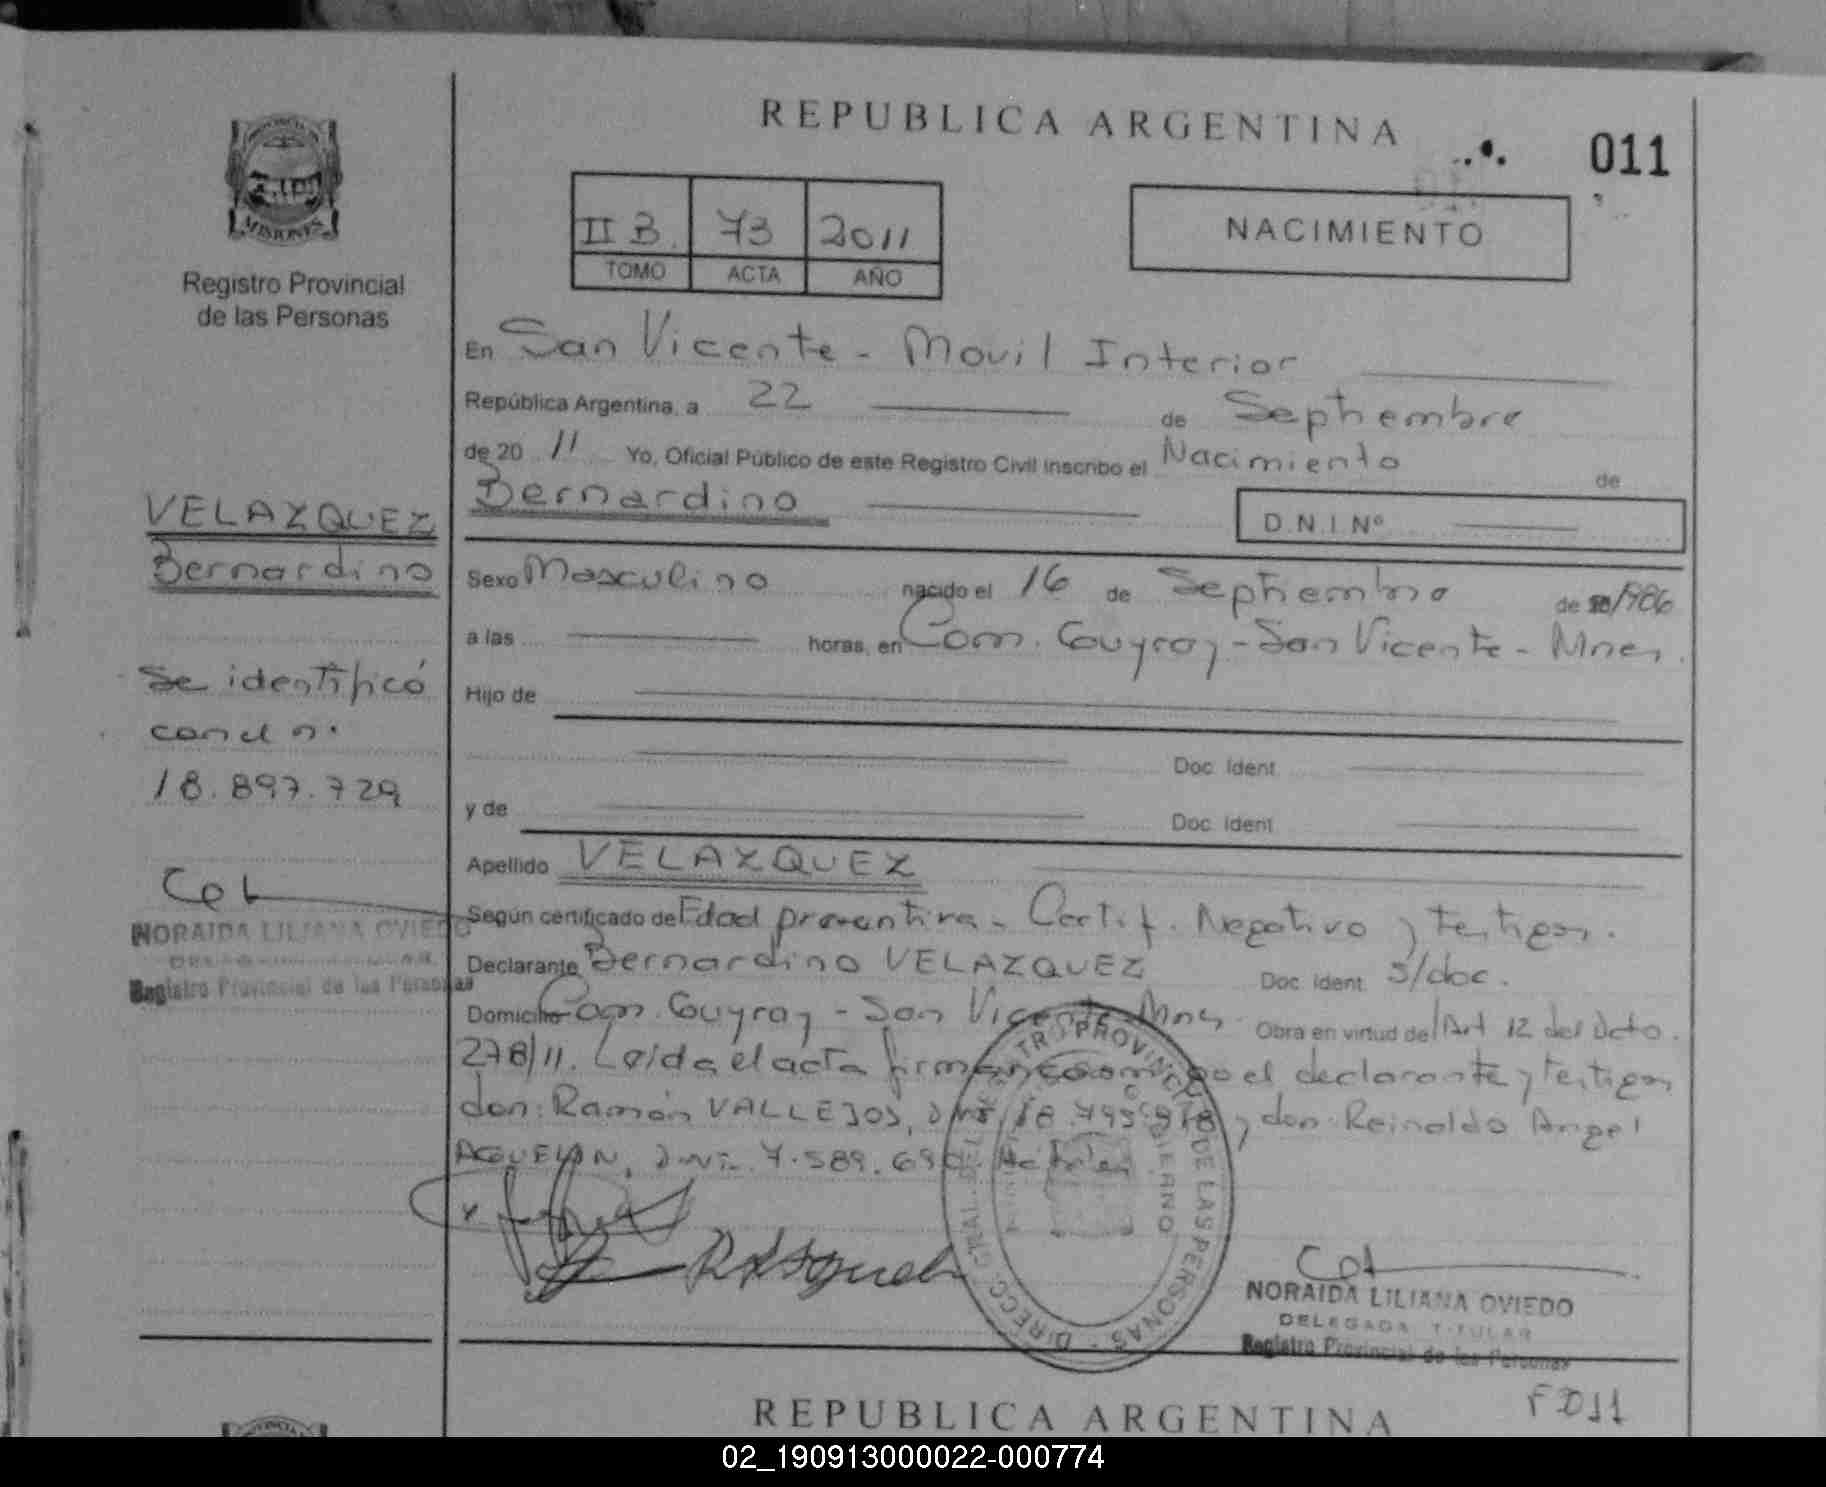 REPUBLICA ARGENTINA
011
MISIONES
Registro Provincial
de las Personas
II B. 73 2011
TOMO ACTA AÑO
NACIMIENTO
En San Vicente - Movil Interior
República Argentina, a 22 de Septiembre
de 20 11 Yo, Oficial Público de este Registro Civil inscribo el Nacimiento de
Bernardino
D.N.I. Nº
VELAZQUEZ
Bernardino
Se identificó
con el n.
18.897.729
NORAIDA LILIANA OVIEDO
Registro Provincial de las Personas
Sexo Masculino nacido el 16 de Septiembre de 1986
a las horas, en Com. Guyray - San Vicente - Mnes.
Hijo de
Doc. Ident.
y de Doc. Ident.
Apellido VELAZQUEZ
Según certificado de Edad preventiva - Certif. Negativo y testigos.
Declarante Bernardino VELAZQUEZ Doc. Ident. s/doc.
Domicilio Com. Guyray - San Vicente Mnes. Obra en virtud del Art 12 del Dcto.
278/11. Leida el acta firman conmigo el declarante y testigos
don: Ramón VALLEJOS, y don Reinaldo Angel
DIRECC. GRAL. DEL REGISTRO PROVINCIAL DE LAS PERSONAS
NORAIDA LILIANA OVIEDO
DELEGADA TITULAR
Registro Provincial de las Personas
F 011
REPUBLICA ARGENTINA
02_190913000022-000774